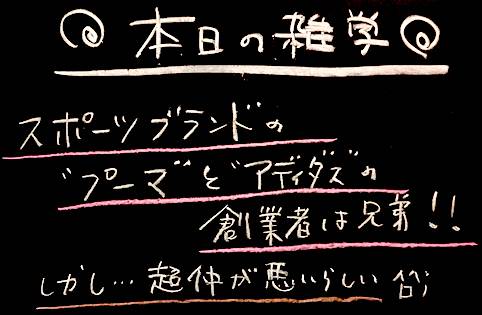 本日の雑学
スポーツブランドの
"プーマ"と"アディダス"の
創業者は兄弟!!
しかし…超仲が悪いらしい(笑)